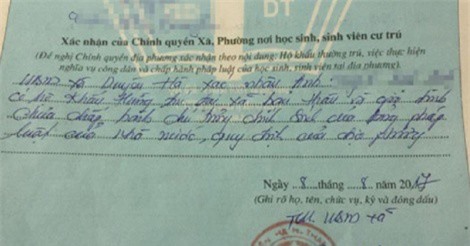 DT
Xác nhận của Chính quyền Xã, Phường nơi học sinh, sinh viên cư trú
(Đề nghị Chính quyền địa phương xác nhận theo nội dung: Hộ khẩu thường trú, việc thực hiện
nghĩa vụ công dân và chấp hành pháp luật của học sinh, sinh viên tại địa phương).
UBND xã Duyên Hà xác nhận
có hộ khẩu thường trú tại xã, bản thân và gia đình
chưa chấp hành chủ trương chính sách của Đảng pháp
luật của nhà nước, quy định của địa phương
Ngày 8 tháng 8 năm 2017
(Ghi rõ họ, tên, chức vụ, ký và đóng dấu)
TM. UBND xã